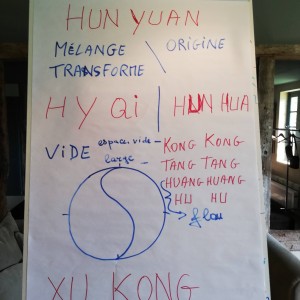 HUN YUAN
MÉLANGE \ ORIGINE
TRANSFORME
HY Qi | HUN HUA
VIDE espace, vide - KONG KONG
large - TANG TANG
HUANG HUANG
HU HU
→ flou
XU KONG